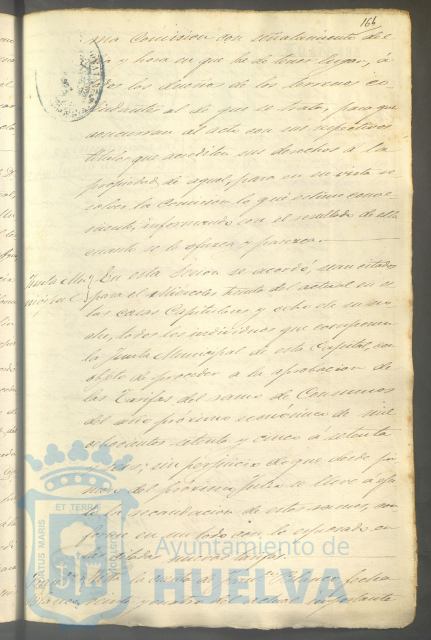 166
ma Comision con señalamiento del
y hora en que ha de tener lugar, á
los dueños de los terrenos co-
lindantes al de que se trata, para que
concurran al acto con sus respectivos
titulos que acrediten sus derechos á la
propiedad de aquel, para en su vista re-
solver la Comision lo que estime conve
niente, informando con el resultado de ello
cuanto se le ofrezca y parezca.
Junta Mu
nicipal
En esta sesion se acordó, sean citados
para el Miercoles treinta del actual en es
tas casas Capitulares y ocho de su no
che, todos los individuos que componen
la Junta Municipal de esta Capital, con
objeto de proceder a la aprobacion de
las Tarifas del ramo de Consumos
del año próximo económico de mil
ochocientos setenta y cinco á setenta
y seis; sin perjuicio de que desde pri
mero del próximo Julio se lleve á efec
to la recaudacion de estos ramos, con
forme en un todo con lo espresado en
ET TERRA
MARIS
Ayuntamiento de
HUELVA